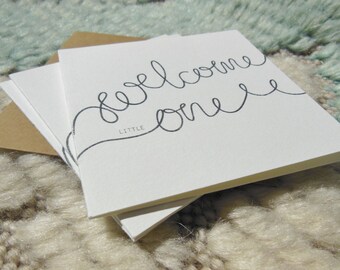 welcome
LITTLE one